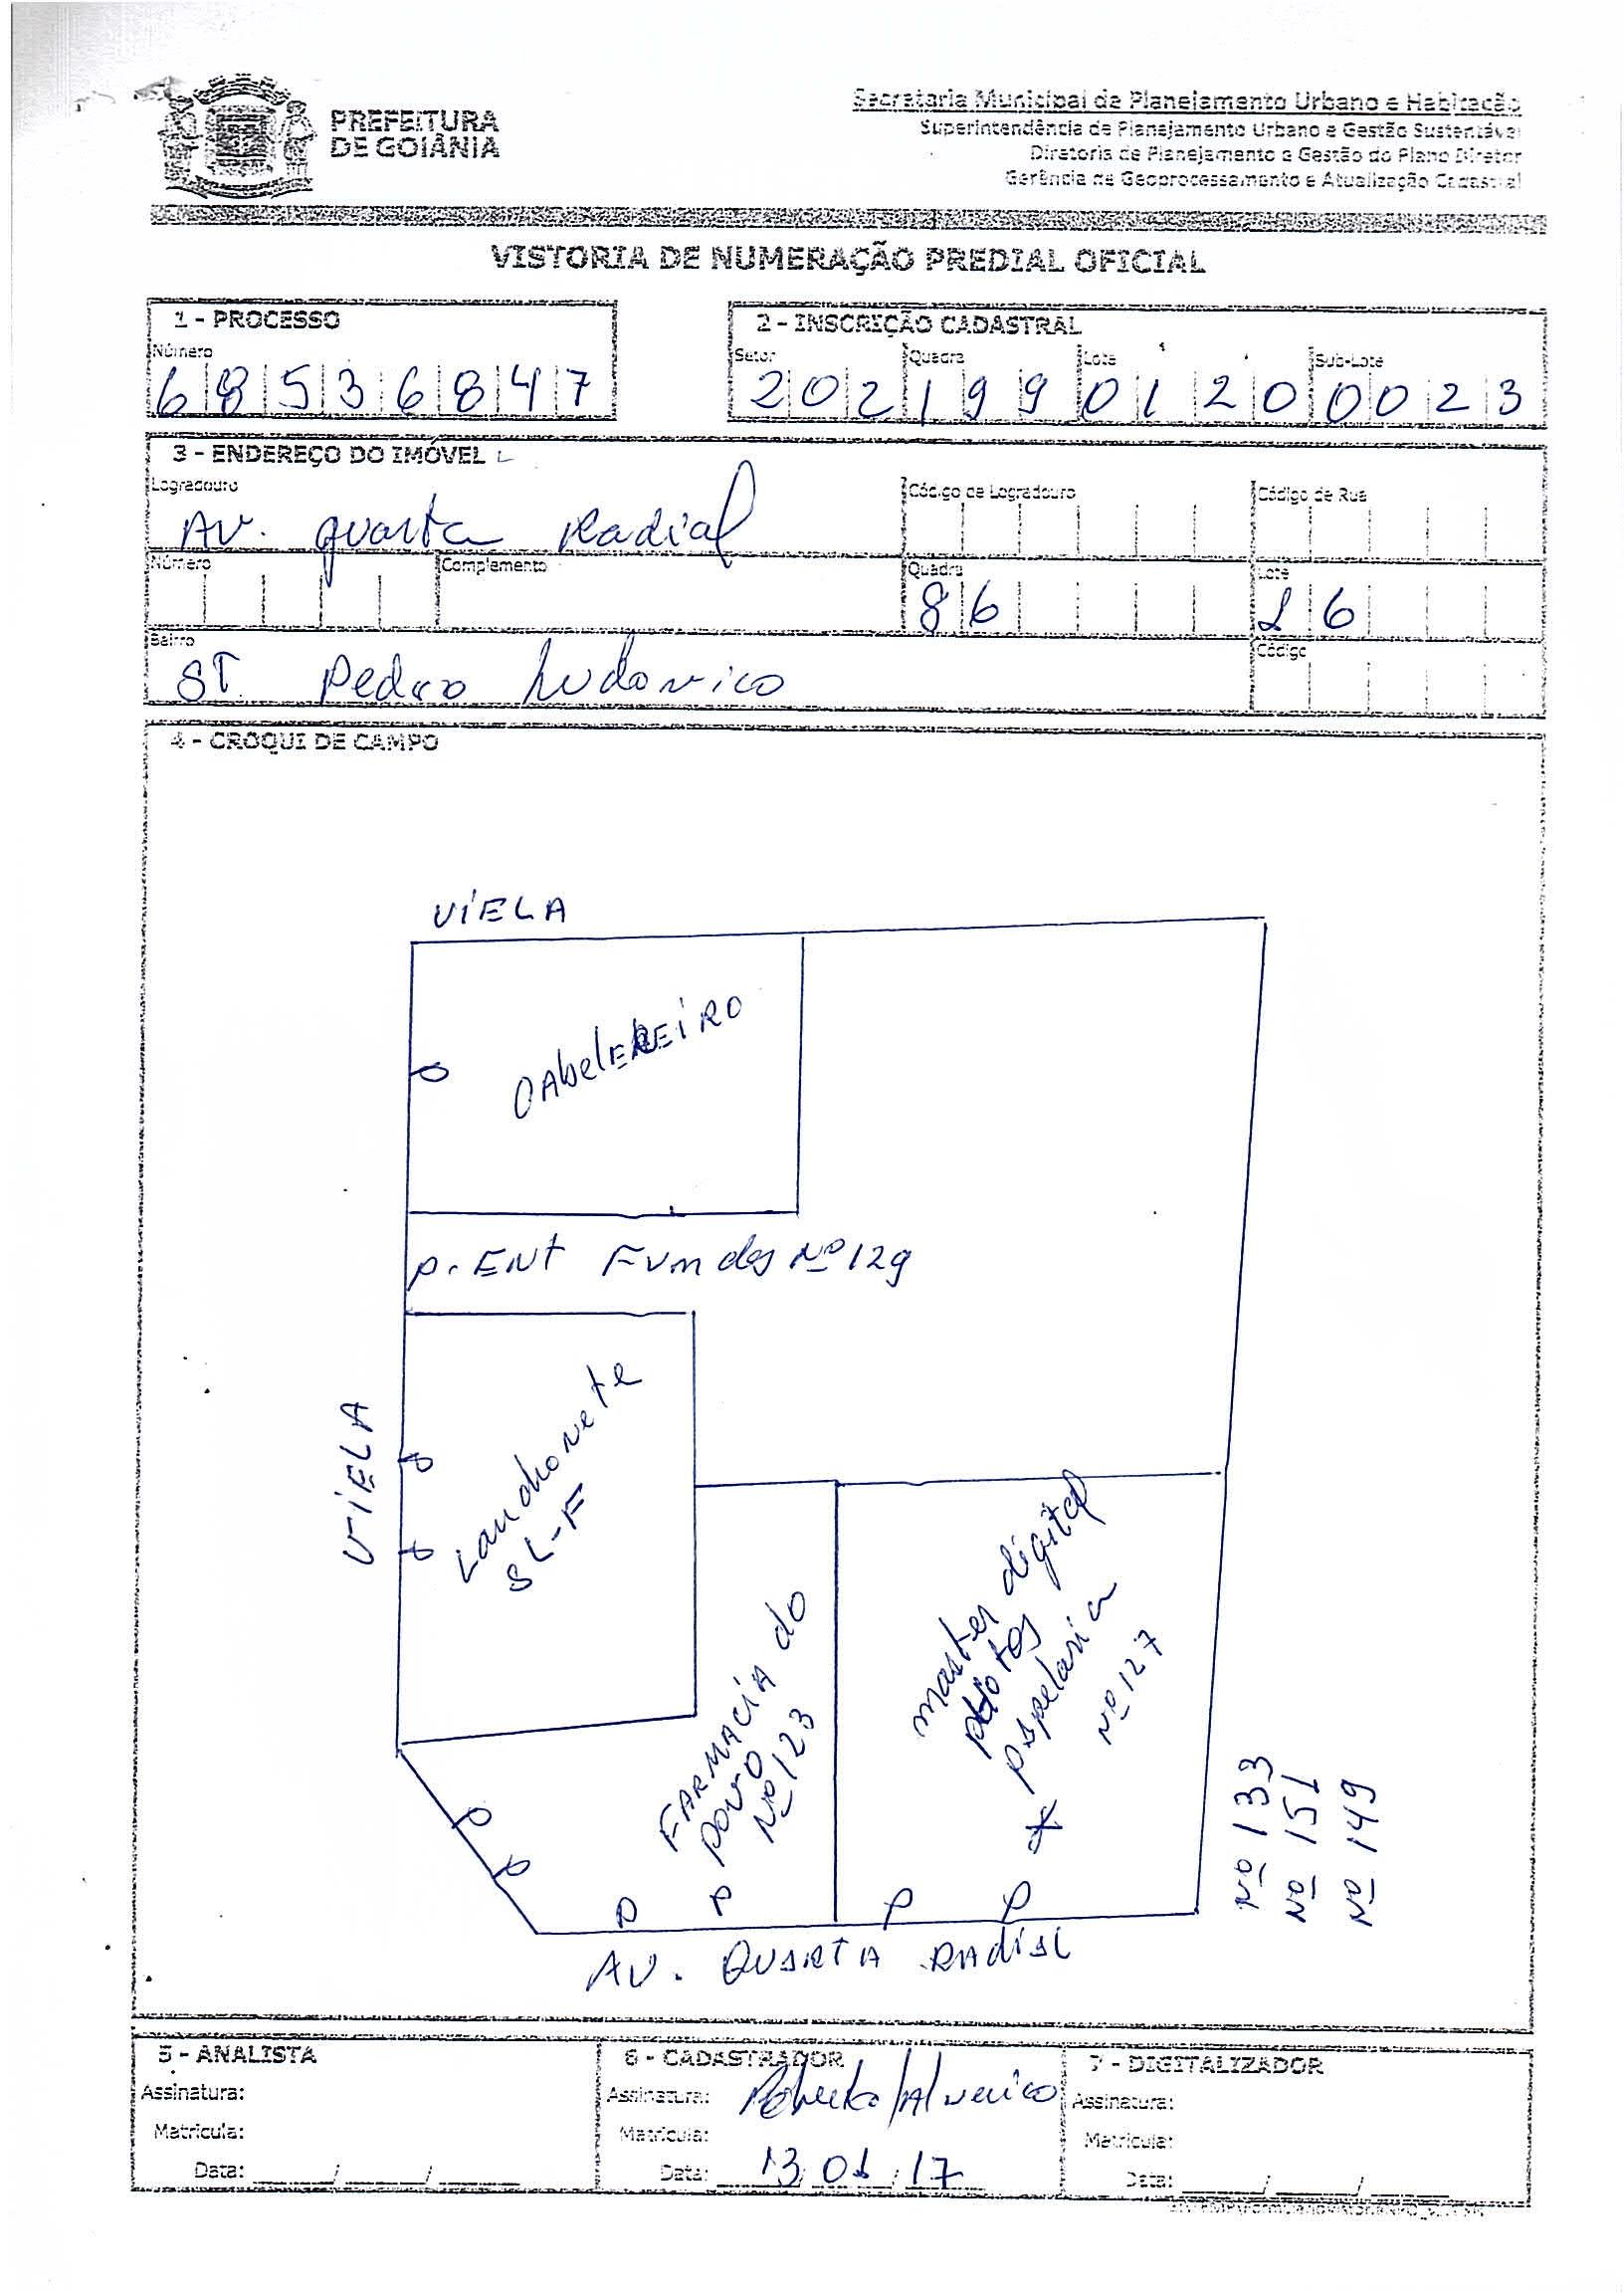 PREFEITURA
DE GOIÂNIA
Secretaria Municipal de Planejamento Urbano e Habitação
Superintendência de Planejamento Urbano e Gestão Sustentável
Diretoria de Planejamento e Gestão do Plano Diretor
Gerência de Geoprocessamento e Atualização Cadastral
VISTORIA DE NUMERAÇÃO PREDIAL OFICIAL
1 - PROCESSO
Número
6 8 5 3 6 8 4 7
2 - INSCRIÇÃO CADASTRAL
Setor Quadra Lote Sub-Lote
2 0 2 1 9 9 0 1 2 0 0 0 2 3
3 - ENDEREÇO DO IMÓVEL
Logradouro Código de Logradouro Código de Rua
AV. quarta Radial
Número Complemento Quadra Lote
8 6 1 6
Bairro Código
ST. Pedro Ludovico
4 - CROQUI DE CAMPO
VIELA
CAbelEREIRO
P. ENT Fundos Nº 129
VIELA
Lanchonete
SL-F
FARMACIA do
povo
Nº 123
master digital
photos
papelaria
Nº 127
Nº 133
Nº 151
Nº 149
AV. QUARTA RADIAL
5 - ANALISTA
Assinatura:
Matrícula:
Data: ____/____/____
6 - CADASTRADOR
Assinatura: Roberto/Almerico
Matrícula:
Data: 13/01/17
7 - DIGITALIZADOR
Assinatura:
Matrícula:
Data: ____/____/____